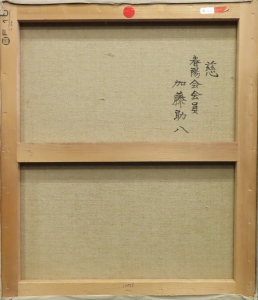 慈
春陽会会員
加藤助八